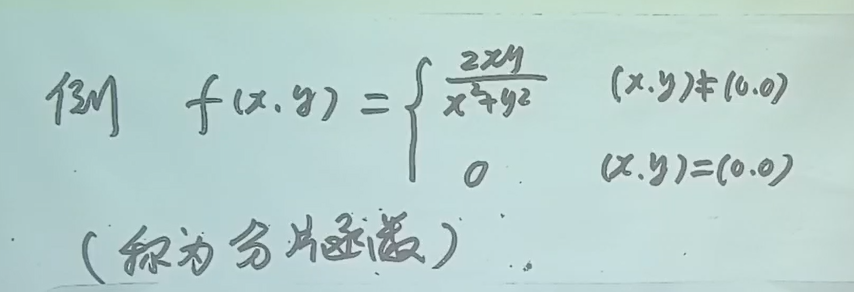 例 f(x.y) = { 2xy/(x²+y²) (x.y)≠(0.0)
0 (x.y)=(0.0)
(称为分片函数)